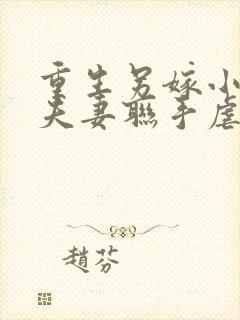 重生另嫁小
夫妻聯手虐
趙芬